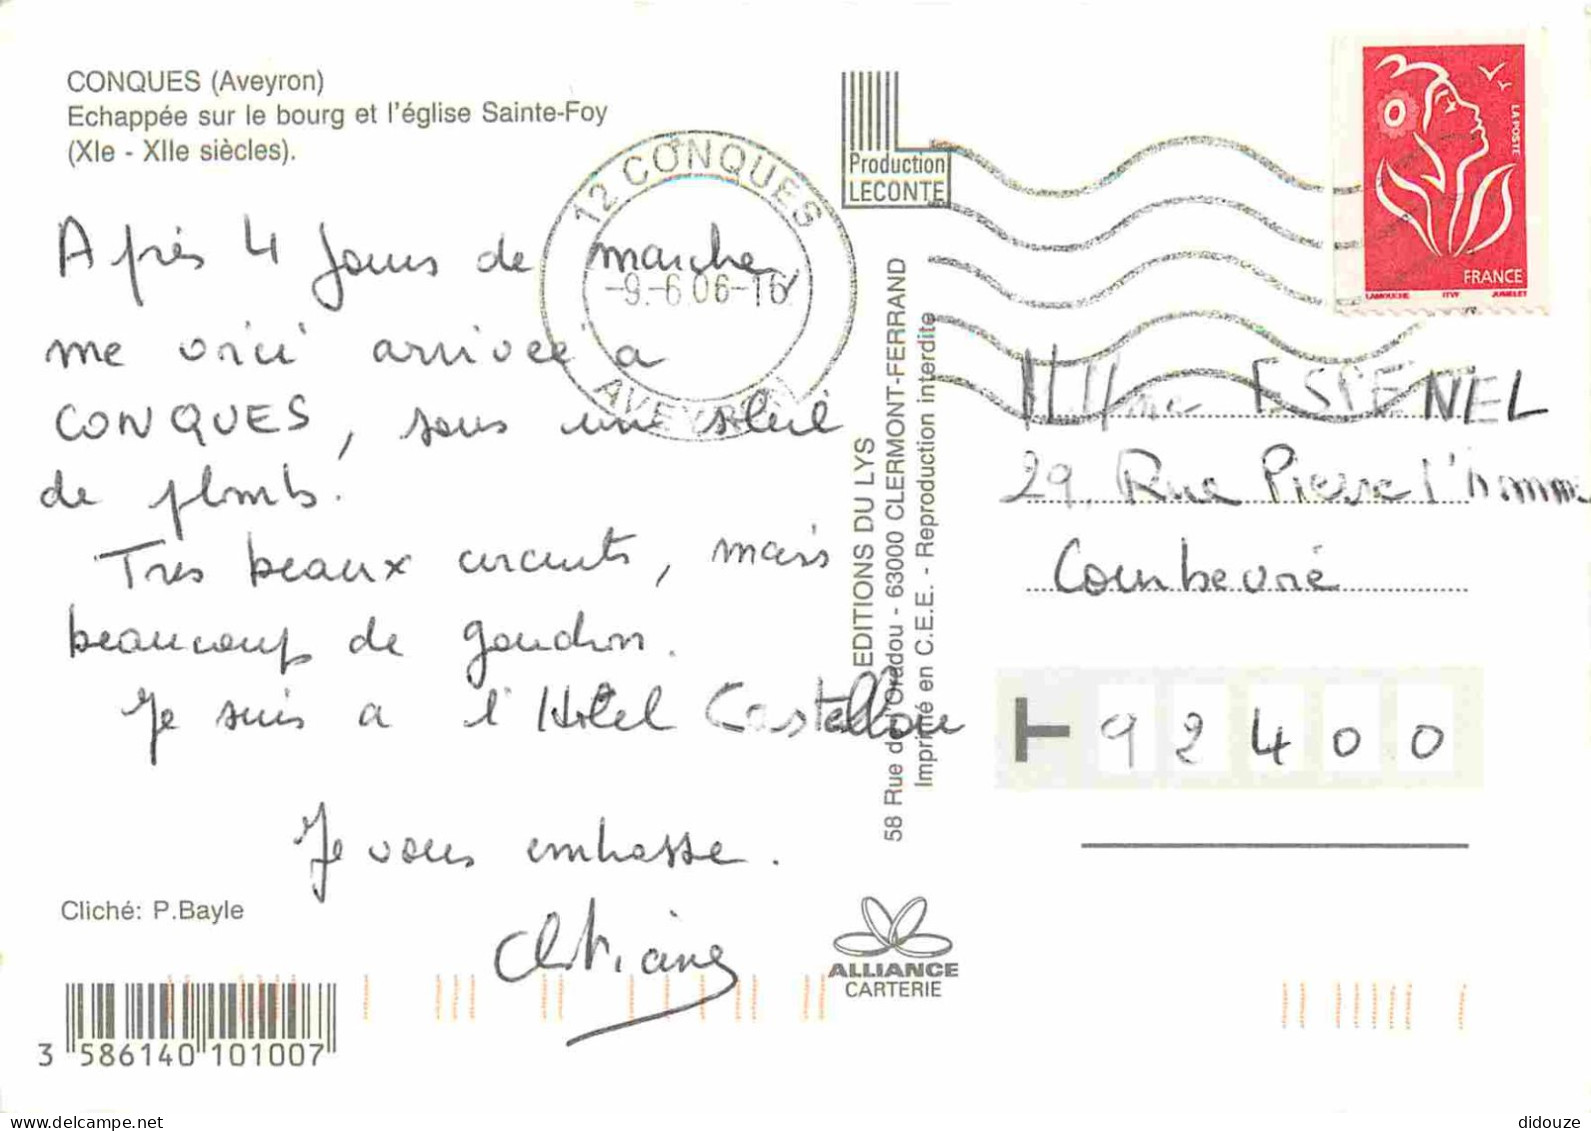 CONQUES (Aveyron)
Echappée sur le bourg et l'église Sainte-Foy
(XIe - XIIe siècles).
Après 4 jours de marche
me voici arrivée à
CONQUES, sous un soleil
de plomb.
Très beaux circuits, mais
beaucoup de goudron.
Je suis à l'Hôtel Castellou
Je vous embrasse.
Christiane
Cliché: P.Bayle
3 586140 101007
12 CONQUES
-9.-6.06-16
AVEYRON
Production
LECONTE
EDITIONS DU LYS
58 Rue de l'Oradou - 63000 CLERMONT-FERRAND
Imprimé en C.E.E. - Reproduction interdite
ALLIANCE
CARTERIE
LA POSTE
FRANCE
LAMOUCHE ITVF JUMELET
ESPENEL
29, Rue Pierre l'homme
Courbevoie
92400
delcampe.net
didouze